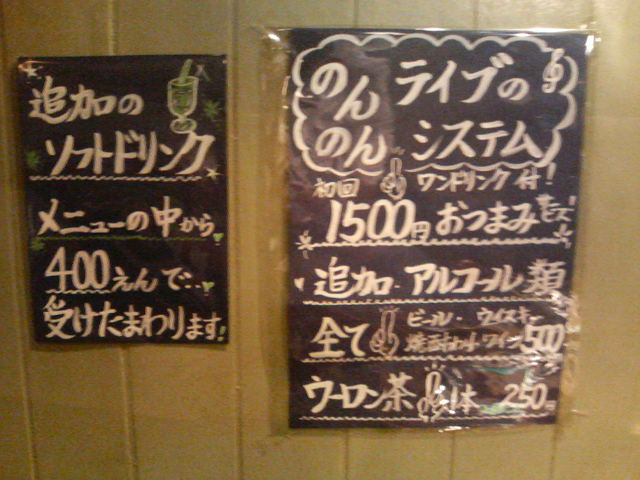 追加の
ソフトドリンク
メニューの中から
400えんで...
受けたまわります!
のんのん ライブの
システム
初回 ワンドリンク付!
1500円 おつまみ
追加 アルコール類
全て ビール・ウイスキー
ワイン 500
ウーロン茶 1本 250円